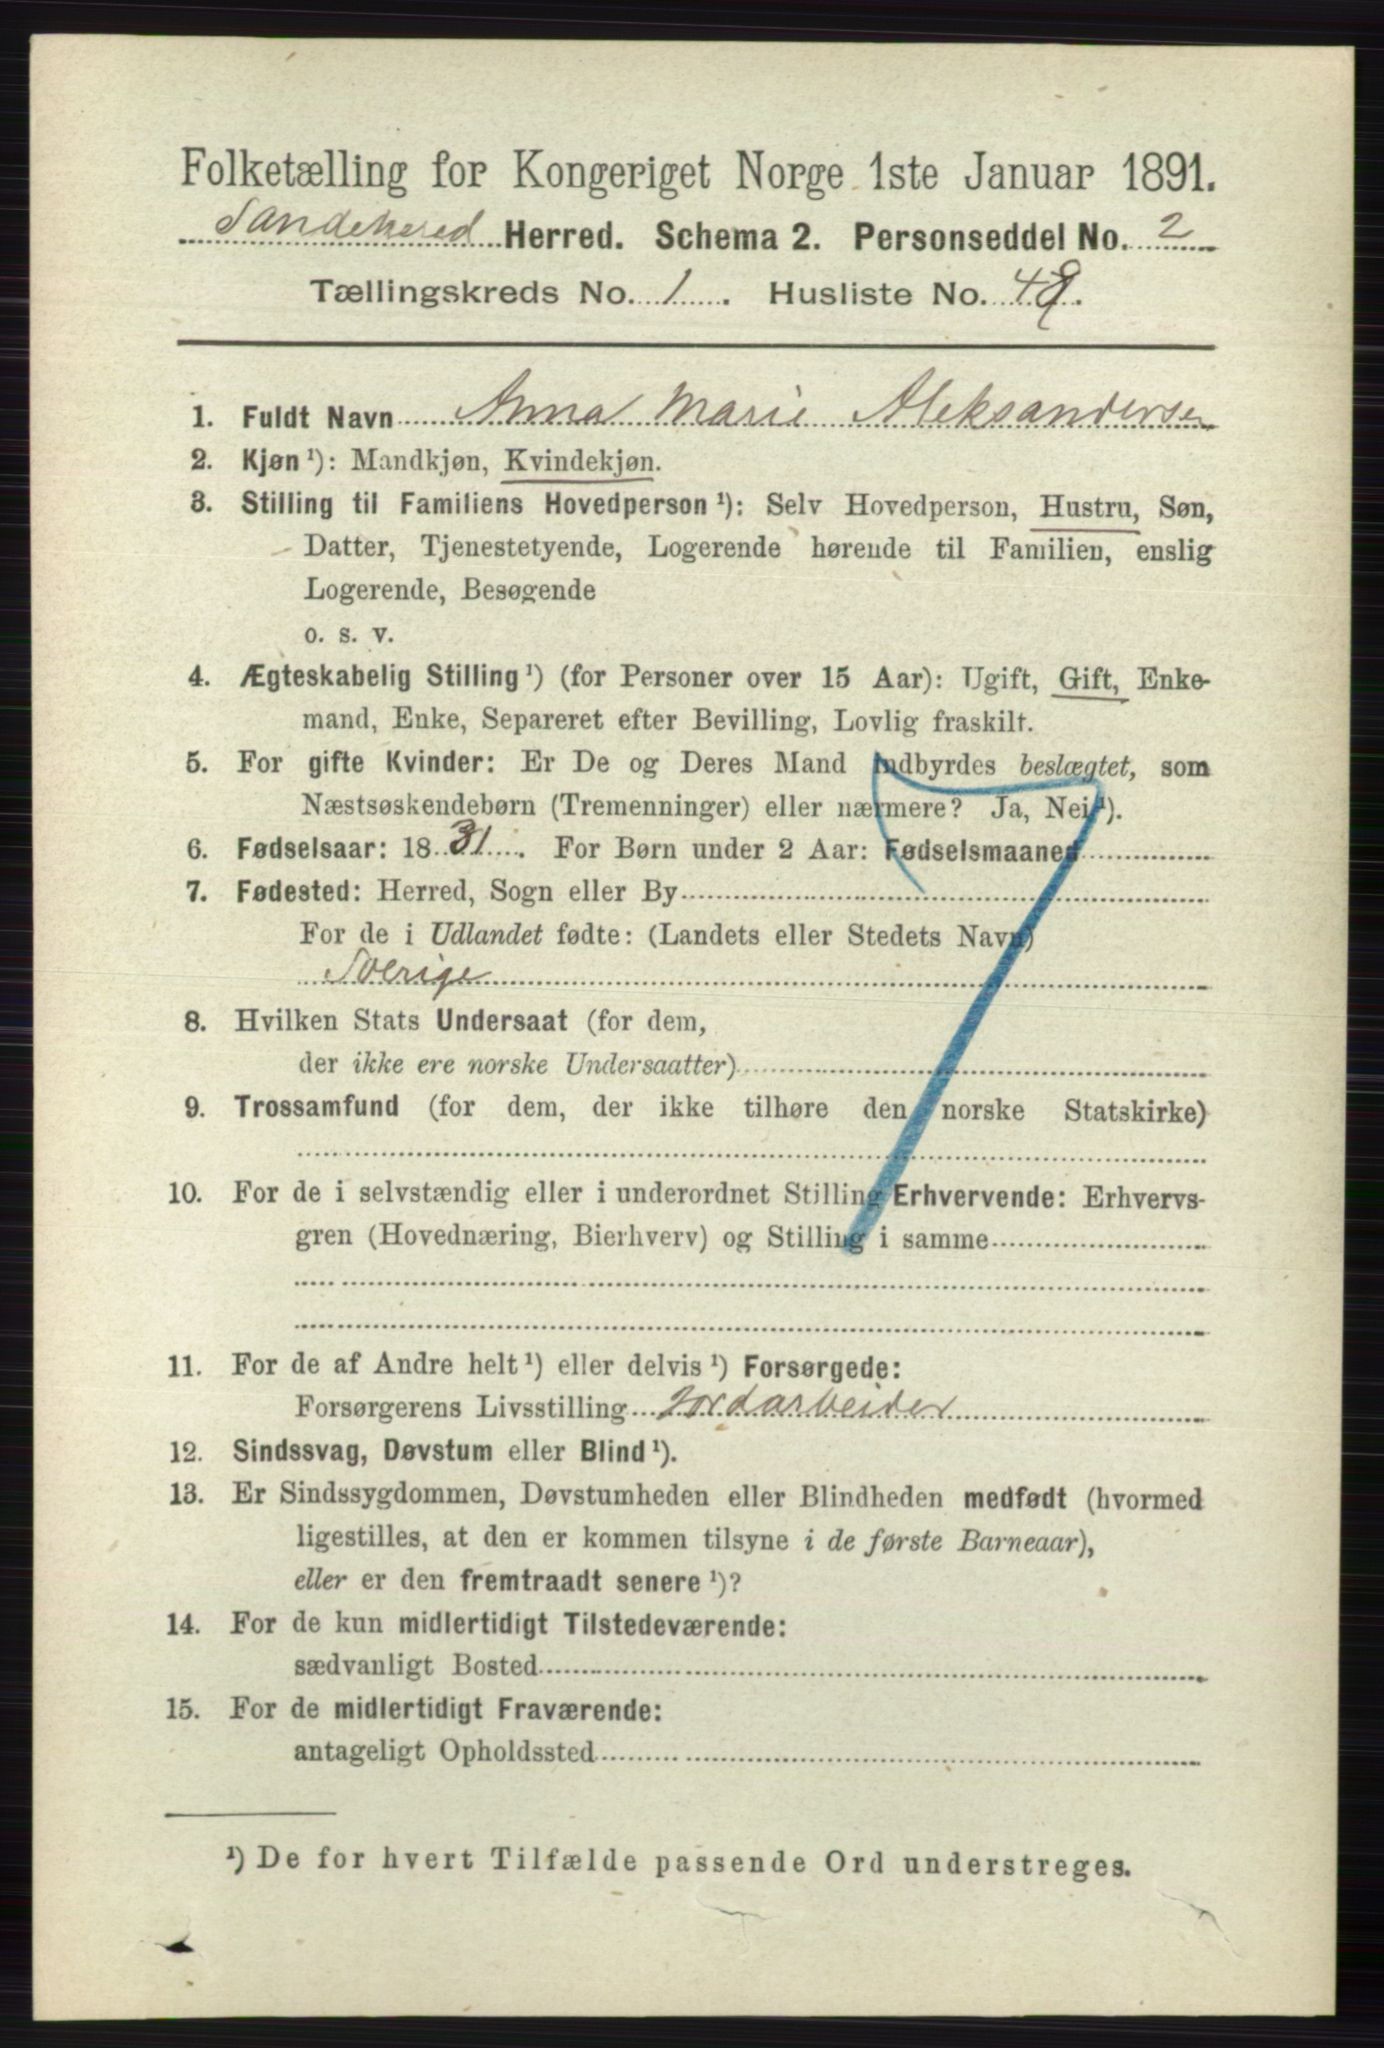 Folketælling for Kongeriget Norge 1ste Januar 1891.
Sandeherred Herred. Schema 2. Personseddel No. 2
Tællingskreds No. 1. Husliste No. 49.
1. Fuldt Navn Anna Marie Aleksandersen
2. Kjøn ¹): Mandkjøn, Kvindekjøn.
3. Stilling til Familiens Hovedperson ¹): Selv Hovedperson, Hustru, Søn,
Datter, Tjenestetyende, Logerende hørende til Familien, enslig
Logerende, Besøgende
o. s. v.
4. Ægteskabelig Stilling ¹) (for Personer over 15 Aar): Ugift, Gift, Enke-
mand, Enke, Separeret efter Bevilling, Lovlig fraskilt.
5. For gifte Kvinder: Er De og Deres Mand indbyrdes beslægtet, som
Næstsøskendebørn (Tremenninger) eller nærmere? Ja, Nei ¹).
6. Fødselsaar: 1831. For Børn under 2 Aar: Fødselsmaaned
7. Fødested: Herred, Sogn eller By
For de i Udlandet fødte: (Landets eller Stedets Navn)
Sverige
8. Hvilken Stats Undersaat (for dem,
der ikke ere norske Undersaatter)
9. Trossamfund (for dem, der ikke tilhøre den norske Statskirke)
10. For de i selvstændig eller i underordnet Stilling Erhvervende: Erhvervs-
gren (Hovednæring, Bierhverv) og Stilling i samme
11. For de af Andre helt ¹) eller delvis ¹) Forsørgede:
Forsørgerens Livsstilling Jordarbeider
12. Sindssvag, Døvstum eller Blind ¹).
13. Er Sindssygdommen, Døvstumheden eller Blindheden medfødt (hvormed
ligestilles, at den er kommen tilsyne i de første Barneaar),
eller er den fremtraadt senere ¹)?
14. For de kun midlertidigt Tilstedeværende:
sædvanligt Bosted
15. For de midlertidigt Fraværende:
antageligt Opholdssted
¹) De for hvert Tilfælde passende Ord understreges.